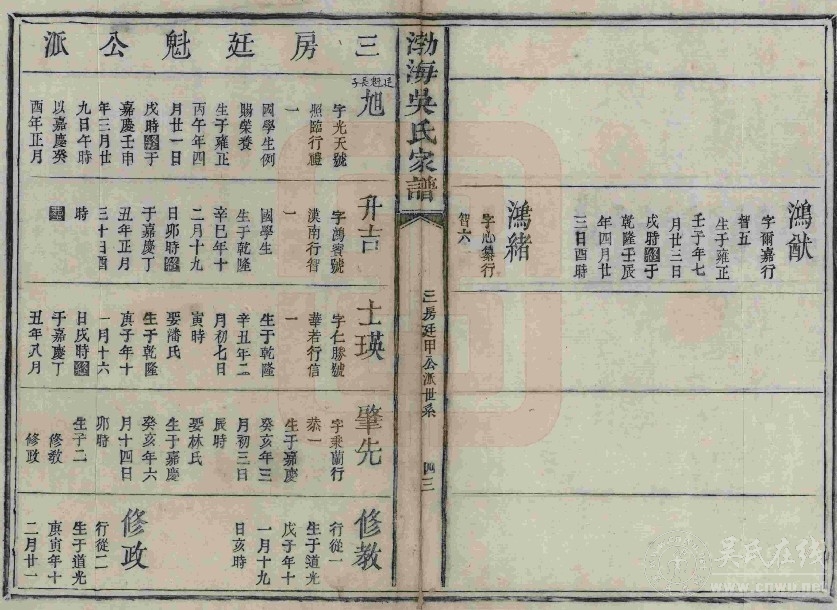 鴻猷
字爾嘉行
智五
生于雍正
壬子年七
月廿三日
戌時終于
乾隆壬辰
年四月廿
三日酉時
鴻緒
字心纂行
智六
渤海吳氏家譜
三房廷甲公派世系
四三
三房廷魁公派
廷魁長子
旭
字光天號
照臨行禮
一
國學生例
賜榮養
生于雍正
丙午年四
月廿一日
戌時終于
嘉慶壬申
年三月廿
九日午時
以嘉慶癸
酉年正月
升吉
字鴻賓號
漢南行智
一
國學生
生于乾隆
辛巳年十
二月十九
日卯時終
于嘉慶丁
丑年正月
三十日酉
時
士瑛
字仁勝號
華若行信
一
生于乾隆
辛丑年二
月初七日
寅時
娶潘氏
生于乾隆
庚子年十
一月十六
日戌時終
于嘉慶丁
丑年八月
肇先
字秉蘭行
恭一
生于嘉慶
癸亥年三
月初三日
辰時
娶林氏
生于嘉慶
癸亥年六
月十四日
卯時
生子二
修教
修政
修教
行從一
生于道光
戊子年十
一月十九
日亥時
修政
行從二
生于道光
庚寅年十
二月廿一
吳氏在线
www.cnwu.net